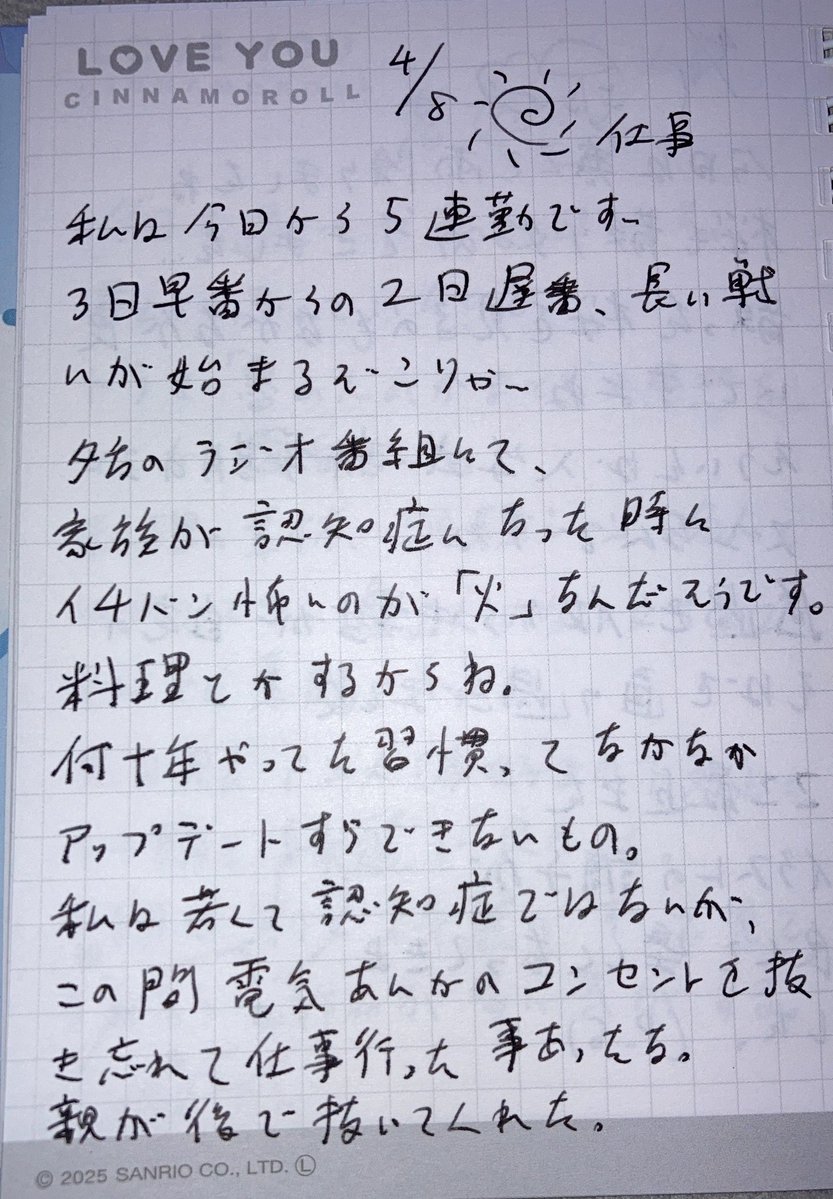 LOVE YOU
CINNAMOROLL
4/8 仕事
私は今日から5連勤です
3日早番からの2日遅番、長い戦
いが始まるぞこりゃー
夕方のラジオ番組にて、
家族が認知症になった時に
イチバン怖いのが「火」なんだそうです。
料理とかするからね。
何十年やってた習慣ってなかなか
アップデートすらできないもの。
私は若くて認知症ではないが、
この間電気あんかのコンセントを抜
き忘れて仕事行った事あったな。
親が後で抜いてくれた。
© 2025 SANRIO CO., LTD. Ⓛ